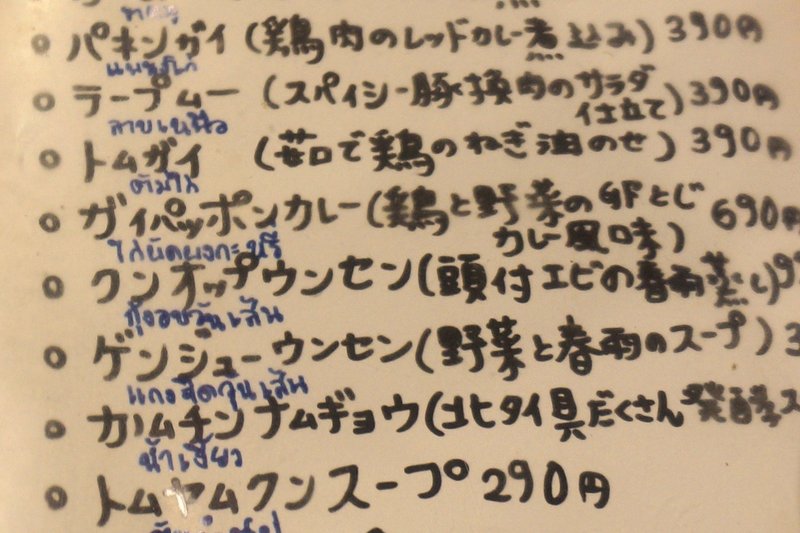 パネンガイ (鶏肉のレッドカレー煮込み) 390円
แพนงไก่
ラープムー (スパイシー豚挽肉のサラダ仕立て) 390円
ลาบเหนือ
トムガイ (茹で鶏のねぎ油のせ) 390円
ต้มไก่
ガイパッポンカレー (鶏と野菜の
カレー風味) 690円
ไก่ผัดผงกะหรี่
クンオップウンセン (頭付エビの春雨蒸し)
กุ้งอบวุ้นเส้น
ゲンジューウンセン (野菜と春雨のスープ)
แกงจืดวุ้นเส้น
カノムチンナムギョウ (北タイ具だくさん発酵ス
น้ำเงี้ยว
トムヤムクンスープ 290円